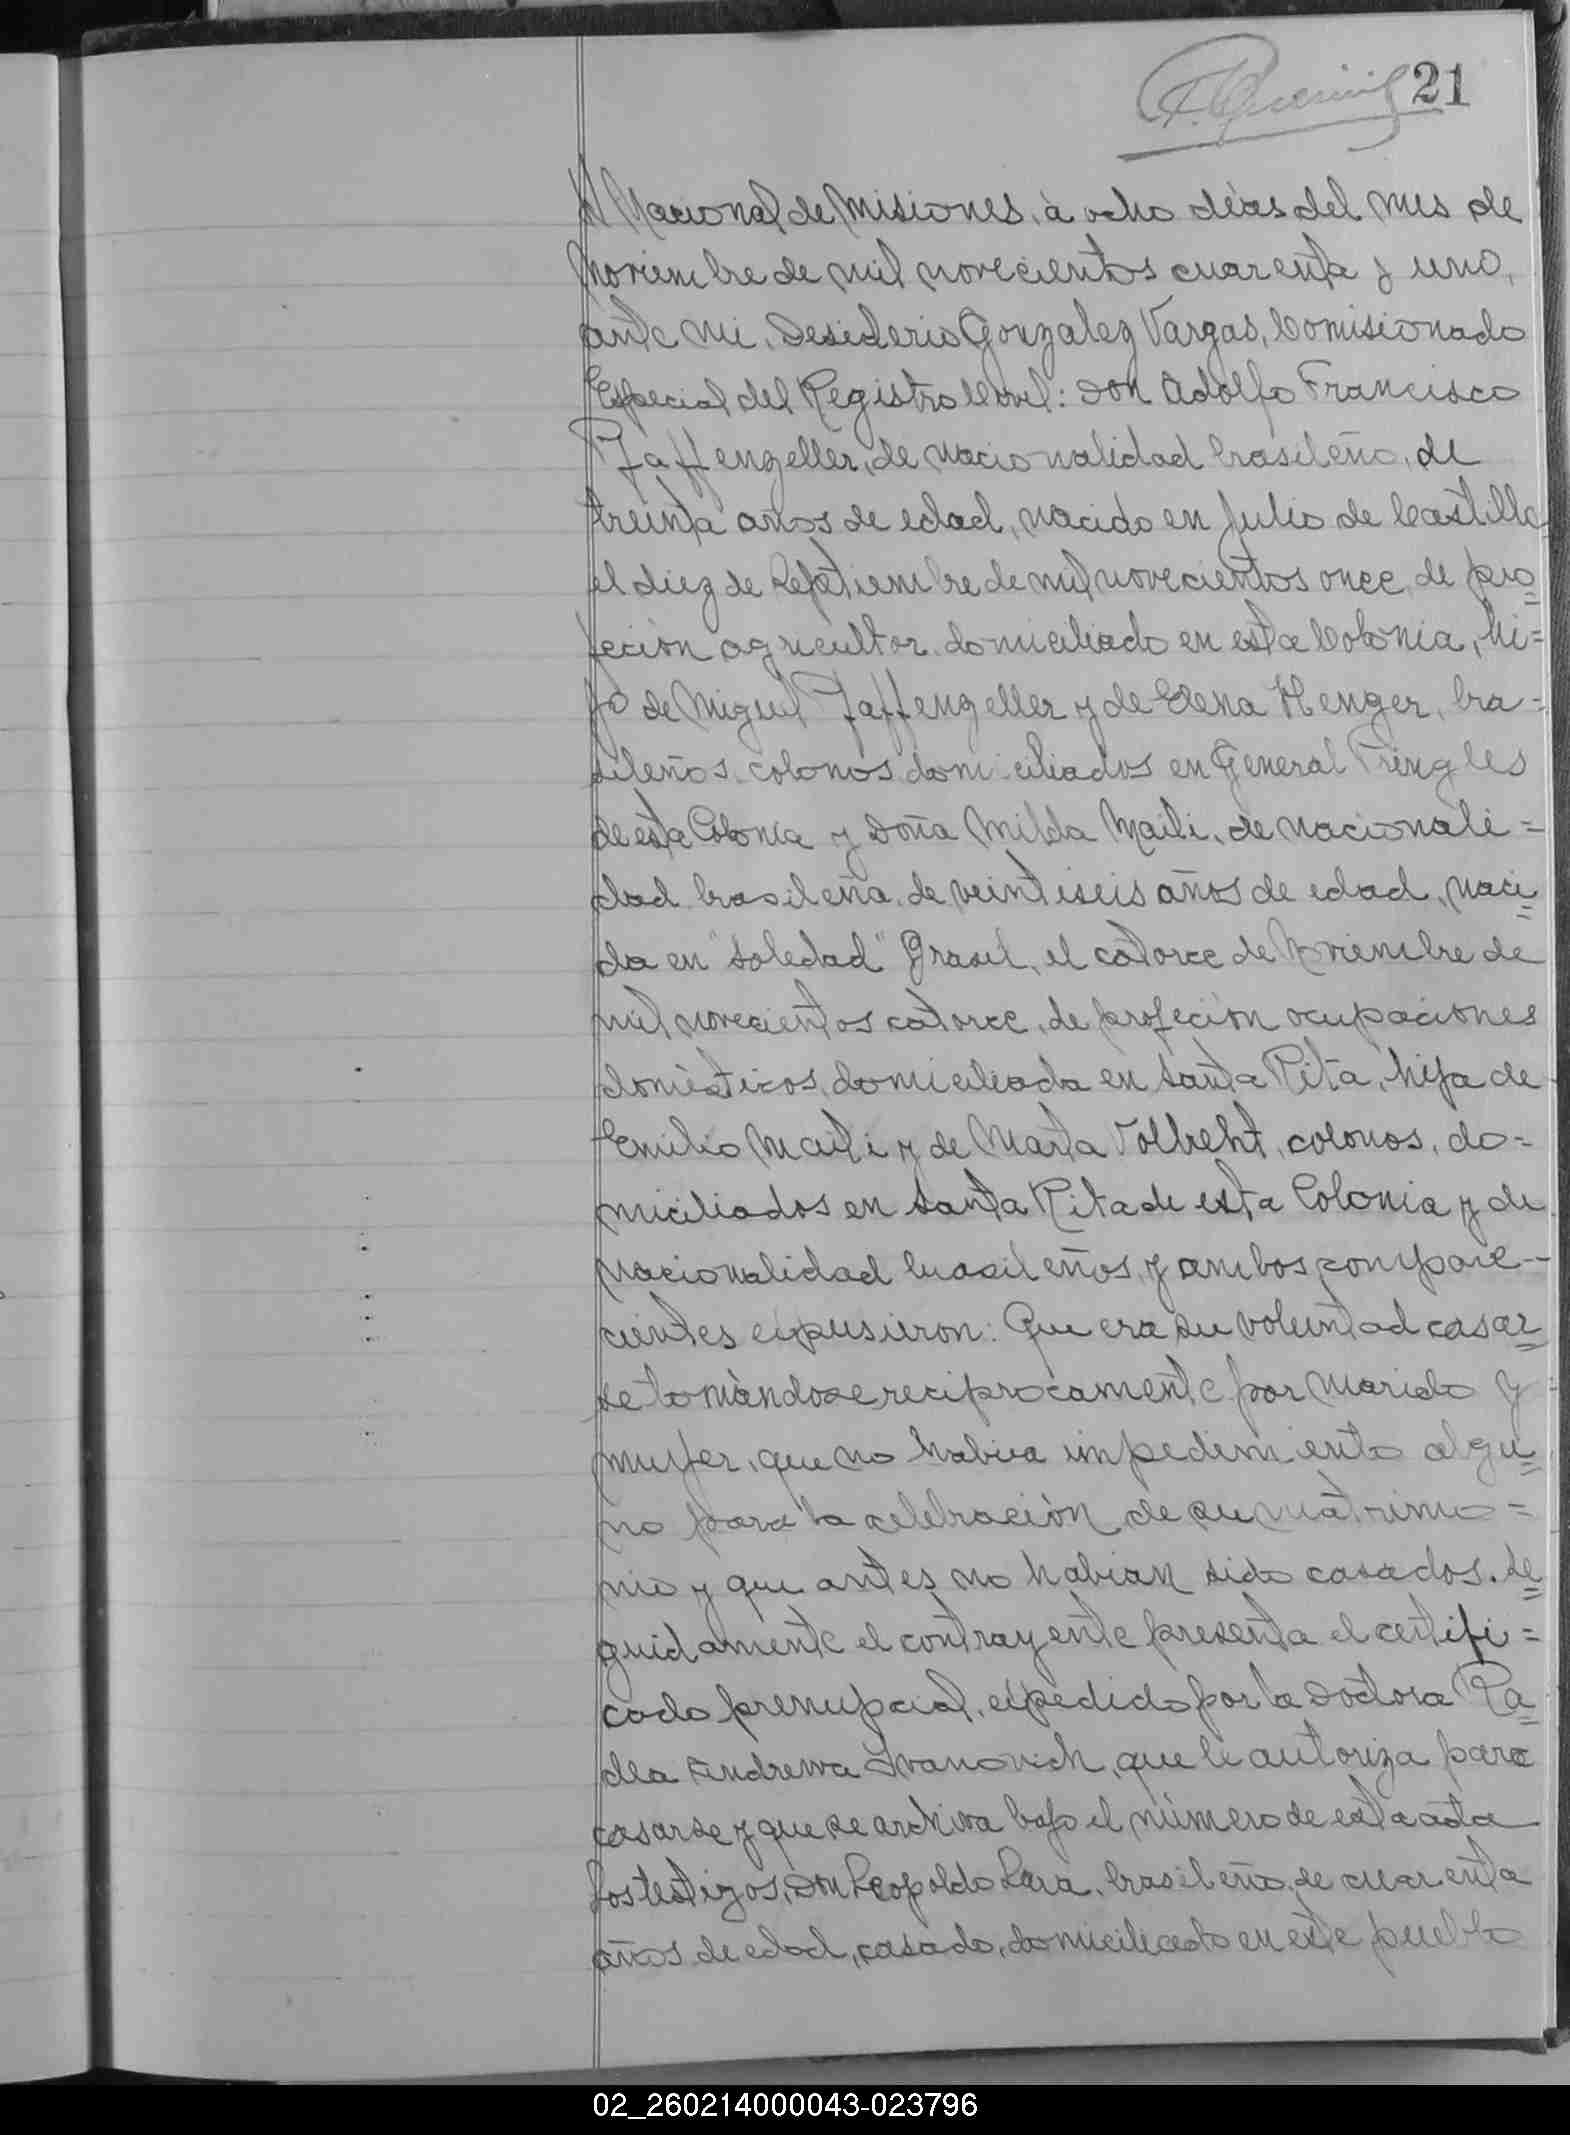 21
Nacional de Misiones, à ocho dias del mes de
Noviembre de mil novecientos cuarenta y uno,
ante mi, Desiderio Gonzalez Vargas, Comisionado
Especial del Registro Civil: Don Adolfo Francisco
Pfaffenzeller, de nacionalidad brasileño, de
treinta años de edad, nacido en Julio de Castillo
el diez de Septiembre de mil novecientos once, de pro=
feción agricultor domiciliado en esta Colonia, hi=
jo de Miguel Pfaffenzeller y de Elena Henger, bra=
sileños colonos domiciliados en General Pringles
de esta Colonia y Doña Milda Maili, de nacionali=
dad brasileña, de veintiseis años de edad, naci=
da en "Soledad" Brasil, el catorce de Noviembre de
mil novecientos catorce, de profeción ocupaciones
domèsticos, domiciliada en Santa Rita, hija de
Emilio Maili y de Marta Volbreht, colonos, do=
miciliados en Santa Rita de esta Colonia y de
nacionalidad brasileños, y ambos compare-
cientes expusieron: Que era su voluntad casar=
se tomàndose reciprocamente por marido y
mujer, que no habia impedimiento algu=
no para la celebración de su matrimo=
nio y que antes no habian sido casados. Se=
guidamente el contrayente presenta el certifi=
cado prenupcial, expedido por la Doctora Ra=
dea Andrewa Ivanovich, que le autoriza para
casarse y que se archiva bajo el número de esta acta
Los testigos, Don Leopoldo Lara, brasileño, de cuarenta
años de edad, casado, domiciliado en este pueblo
02_260214000043-023796